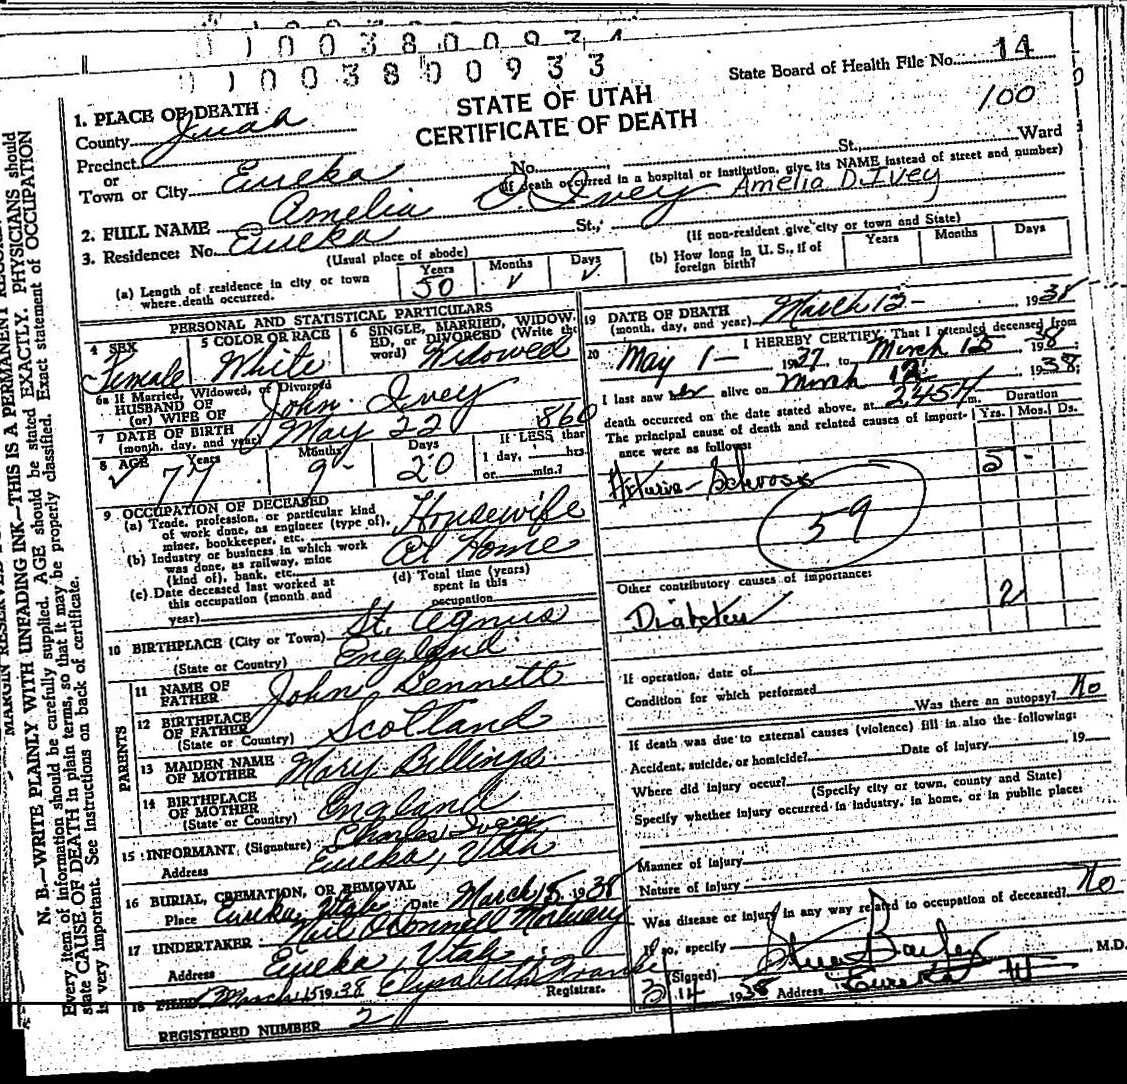 1003800934
1003800933
State Board of Health File No. 14
100
STATE OF UTAH
CERTIFICATE OF DEATH
1. PLACE OF DEATH
County Juab
Precinct
or
Town or City Eureka No. St., Ward
(If death occurred in a hospital or institution, give its NAME instead of street and number)
2. FULL NAME Amelia D. Ivey Amelia D. Ivey
3. Residence: No. Eureka St.,
(Usual place of abode) (If non-resident give city or town and State)
(a) Length of residence in city or town where death occurred. Years 50 Months ✓ Days ✓
(b) How long in U. S., if of foreign birth? Years Months Days
PERSONAL AND STATISTICAL PARTICULARS
4 SEX Female
5 COLOR OR RACE White
6 SINGLE, MARRIED, WIDOWED, or DIVORCED (Write the word) Widowed
6a If Married, Widowed, or Divorced
HUSBAND OF
(or) WIFE OF John Ivey
7 DATE OF BIRTH
(month, day, and year) May 22 1860
8 AGE ✓ Years 77 Months 9 Days 20 If LESS than
1 day, hrs.
or min.?
9 OCCUPATION OF DECEASED
(a) Trade, profession, or particular kind
of work done, as engineer (type of),
miner, bookkeeper, etc. Housewife
(b) Industry or business in which work
was done, as railway, mine
(kind of), bank, etc. At Home
(c) Date deceased last worked at
this occupation (month and
year)
(d) Total time (years)
spent in this
occupation
10 BIRTHPLACE (City or Town) St. Agnus
(State or Country) England
PARENTS
11 NAME OF
FATHER John Bennett
12 BIRTHPLACE
OF FATHER
(State or Country) Scotland
13 MAIDEN NAME
OF MOTHER Mary Billings
14 BIRTHPLACE
OF MOTHER
(State or Country) England
15 INFORMANT (Signature) Charles Ivey
Address Eureka, Utah
16 BURIAL, CREMATION, OR REMOVAL
Place Eureka, Utah Date March 15, 1938
17 UNDERTAKER Neil O'Connell Mortuary
Address Eureka, Utah
18 FILED March 15 1938 Elysabeth Franke
Registrar.
REGISTERED NUMBER 2
19 DATE OF DEATH
(month, day, and year) March 12 - 1938
20 I HEREBY CERTIFY, That I attended deceased from
May 1 - 1937 to March 12 1938
I last saw her alive on March 12 1938;
death occurred on the date stated above, at 2.45 m. Duration
The principal cause of death and related causes of importance were as follows: Yrs. Mos. Ds.
Arterio-Sclerosis 5 -
59
Other contributory causes of importance:
Diabetes 2
If operation, date of
Condition for which performed
Was there an autopsy? No
If death was due to external causes (violence) fill in also the following:
Accident, suicide, or homicide? Date of injury 19
Where did injury occur?
(Specify city or town, county and State)
Specify whether injury occurred in industry, in home, or in public place:
Manner of injury
Nature of injury
Was disease or injury in any way related to occupation of deceased? No
If so, specify
(Signed) Steve Bailey M.D.
3/14 1938 Address Eureka Ut
N. B.—WRITE PLAINLY WITH UNFADING INK—THIS IS A PERMANENT RECORD.
Every item of information should be carefully supplied. AGE should be stated EXACTLY. PHYSICIANS should
state CAUSE OF DEATH in plain terms, so that it may be properly classified. Exact statement of OCCUPATION
is very important. See instructions on back of certificate.
MARGIN RESERVED